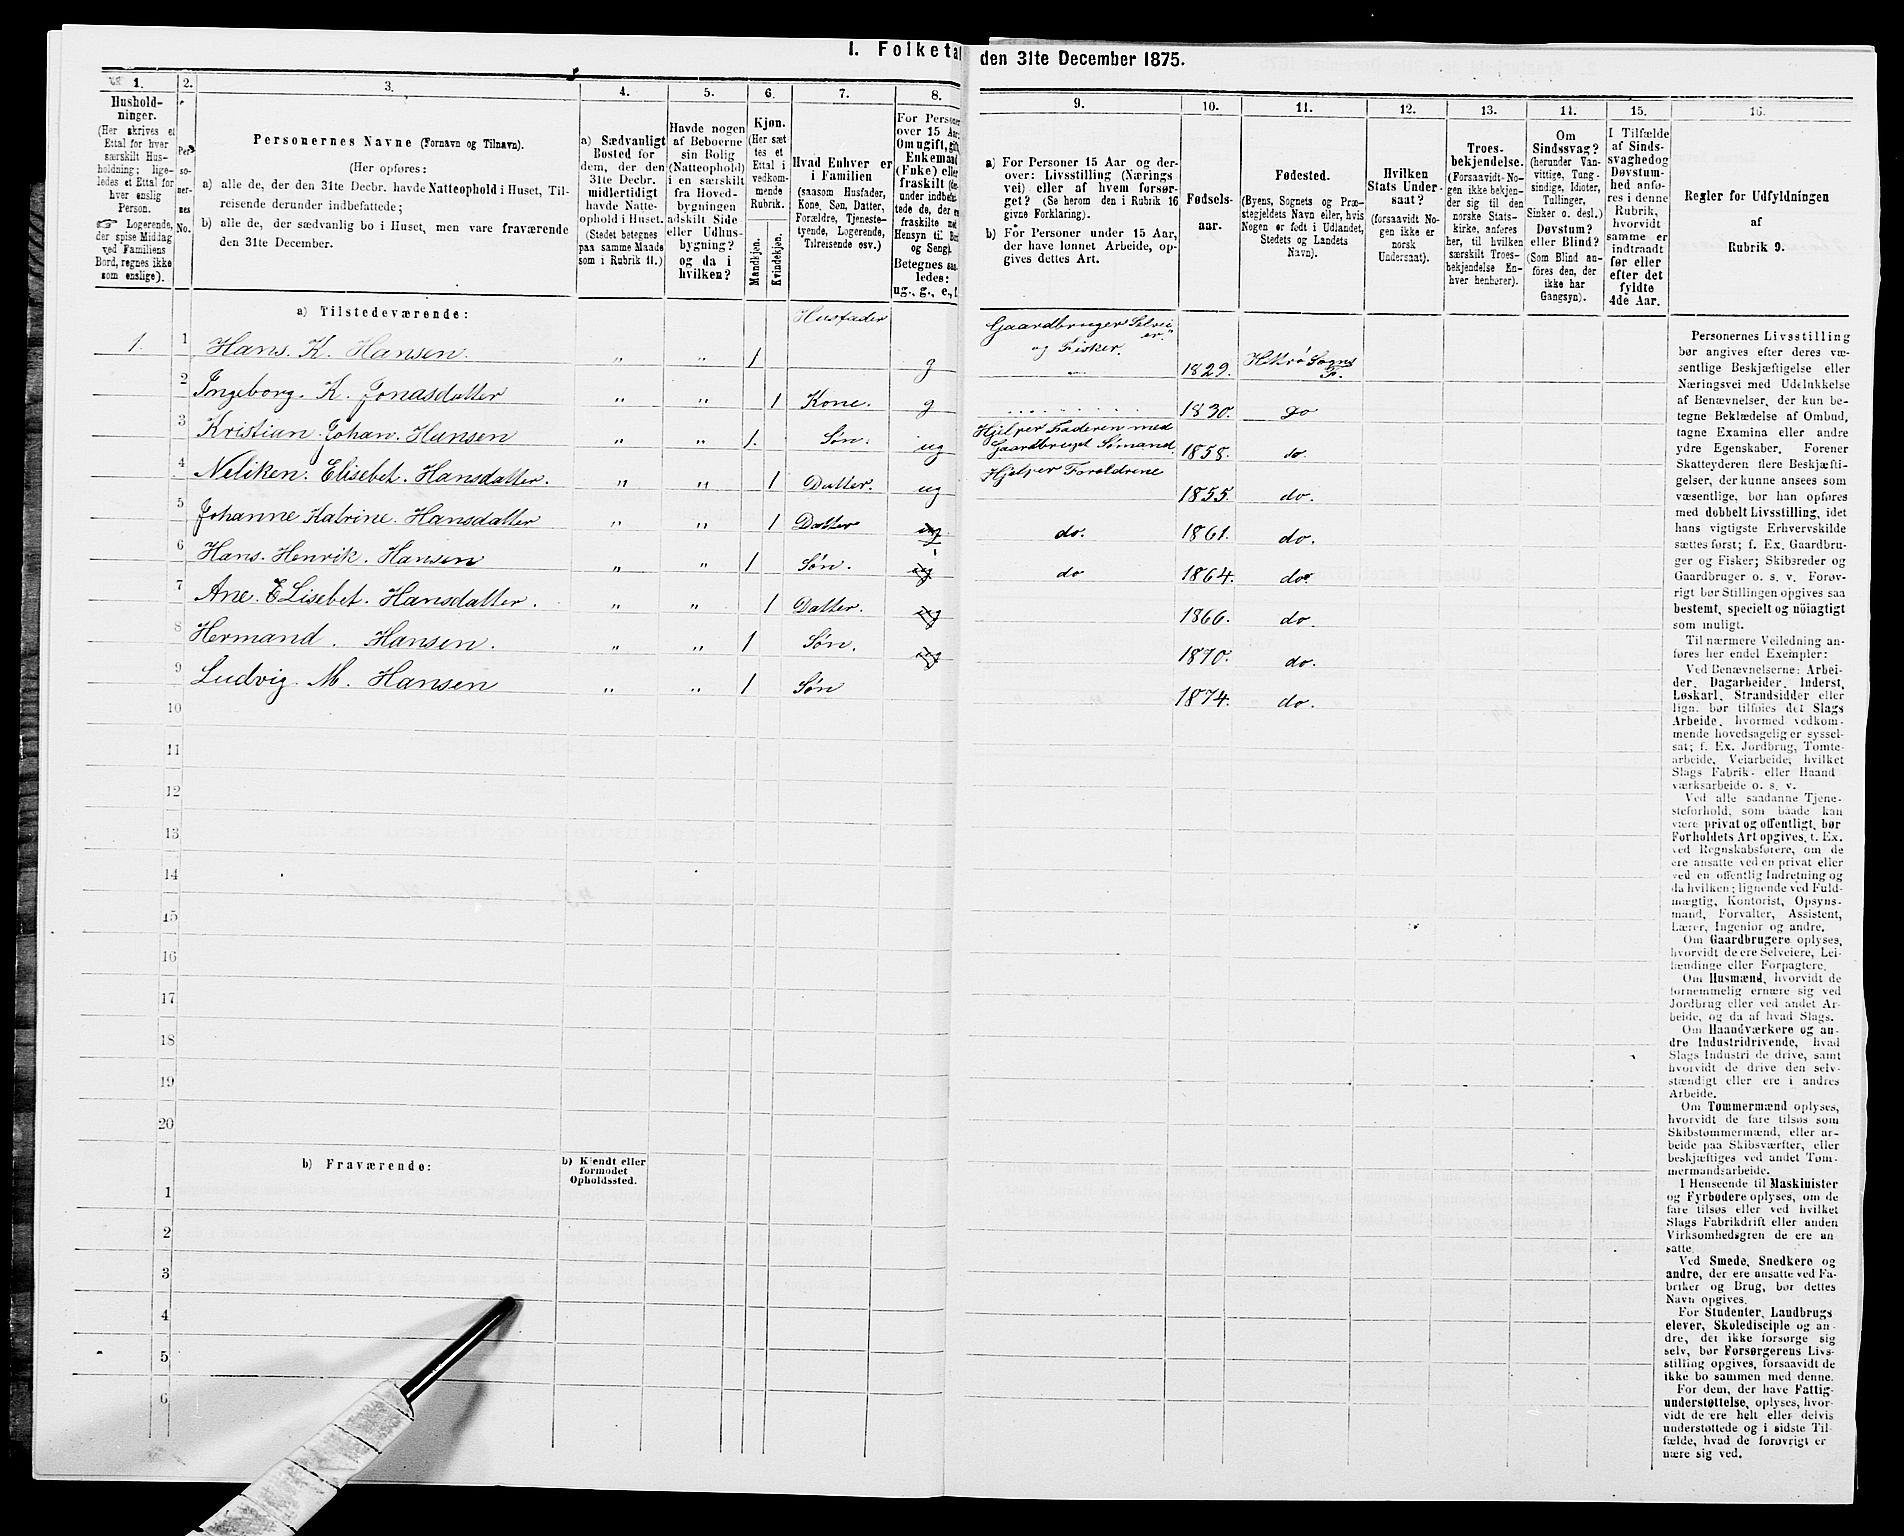 I. Folketal
den 31te December 1875.
1. 2. 3. 4. 5. 6. 7. 8. 9. 10. 11. 12. 13. 14. 15. 16.
Hushold-
ninger.
(Her skrives et
Ettal for hver
særskilt Hus-
holdning; lige-
ledes et Ettal for
hver enslig
Person.
☞ Logerende,
der spise Middag
ved Familiens
Bord, regnes ikke
som enslige).
Per-
so-
ner-
nes
No.
Personernes Navne (Fornavn og Tilnavn).
(Her opføres:
a) alle de, der den 31te Decbr. havde Natteophold i Huset, Til-
reisende derunder indbefattede;
b) alle de, der sædvanlig bo i Huset, men vare fraværende
den 31te December.
a) Sædvanligt
Bosted for
dem, der den
31te Decbr.
midlertidigt
havde Natte-
ophold i Huset.
(Stedet betegnes
paa samme Maade
som i Rubrik 11.)
Havde nogen
af Beboerne
sin Bolig
(Natteophold)
i en særskilt
fra Hoved-
bygningen
adskilt Side
eller Udhus-
bygning?
og da i
hvilken?
Kjøn.
(Her sæt
tes et
Ettal i
vedkom-
mende
Rubrik.
Mandkjøn.
Kvindekjøn.
Hvad Enhver er
i Familien
(saasom Husfader,
Kone, Søn, Datter,
Forældre, Tjeneste-
tyende, Logerende,
Tilreisende osv.)
For Personer
over 15 Aar
Om ugift, gift
Enkemand
(Enke) eller
fraskilt
under indbefat-
tede de, der er
fraskilte
Hensyn til Bord
og Seng).
Betegnes saa
ledes:
ug., g., e., f.
a) For Personer 15 Aar og der-
over: Livsstilling (Nærings
vei) eller af hvem forsør-
get? (Se herom den i Rubrik 16
givne Forklaring).
b) For Personer under 15 Aar,
der have lønnet Arbeide, op-
gives dettes Art.
Fødsels-
aar.
Fødested.
(Byens, Sognets og Præ-
stegjeldets Navn eller, hvis
Nogen er født i Udlandet,
Stedets og Landets
Navn).
Hvilken
Stats Under-
saat?
(forsaavidt No-
gen ikke er
norsk
Undersaat).
Troes-
bekjendelse.
(Forsaavidt No-
gen ikke bekjen-
der sig til den
norske Stats-
kirke, anføres
her, til hvilken
særskilt Troes-
bekjendelse En-
hver henhører).
Om
Sindssvag?
(herunder Van-
vittige, Tung-
sindige, Idioter,
Tullinger,
Sinker o. desl.)
Døvstum?
eller Blind?
(Som Blind an-
føres den, der
ikke har
Gangsyn).
I Tilfælde
af Sinds-
svaghedog
Døvstum-
hed anfø-
res i denne
Rubrik,
hvorvidt
samme er
indtraadt
før eller
efter det
fyldte
4de Aar.
Regler for Udfyldningen
af
Rubrik 9.
a) Tilstedeværende:
1. 1 Hans. K. Hansen. „ „ 1 Husfader g Gaardbruger Selvei er og Fisker. 1829. Hitterø Sogns P.
2 Ingeborg. K. Jonasdatter „ „ 1 Kone. g 1830. Do
3 Kristian. Johan. Hansen „ „ 1. Søn. ug Hjelper Faderen med Gaardbruget Sømand. 1858. do.
4 Neliken. Elisebet. Hansdatter. „ „ 1 Datter. ug Hjelper Foreldrene 1855. do.
5 Johanne Katrine. Hansdatter „ „ 1 Datter ug do. 1861. do.
6 Hans. Henrik. Hansen „ „ 1 Søn. ug do 1864. do.
7 Ane. Elisebet. Hansdatter. „ „ 1 Datter. ug 1866. do.
8 Hermand. Hansen. „ „ 1 Søn. ug 1870. do.
9 Ludvig. M. Hansen „ „ 1 Søn 1874. do.
10
11
12
13
14
15
16
17
18
19
20
b) Fraværende:
b) Kjendt eller
formodet
Opholdssted.
1
2
3
4
5
6
Personernes Livsstilling
bør angives efter deres væ-
sentlige Beskjæftigelse eller
Næringsvei med Udelukkelse
af Benævnelser, der kun be-
tegne Beklædelse af Ombud,
tagne Examina eller andre
ydre Egenskaber. Forener
Skatteyderen flere Beskjæfti-
gelser, der kunne ansees som
væsentlige, bør han opføres
med dobbelt Livsstilling, idet
hans vigtigste Erhvervskilde
sættes først; f. Ex. Gaardbru-
ger og Fisker; Skibsreder og
Gaardbruger o. s. v. Forøv-
rigt bør Stillingen opgives saa
bestemt, specielt og nöiagtigt
som muligt.
Til nærmere Veiledning an-
føres her endel Exempler:
Ved Benævnelserne: Arbei-
der, Dagarbeider, Inderst,
Løskarl, Strandsidder eller
lign. bør tilføies det Slags
Arbeide, hvormed vedkom-
mende hovedsagelig er syssel-
sat; f. Ex. Jordbrug, Tomte-
arbeide, Veiarbeide, hvilket
Slags Fabrik- eller Haand
værksarbeide o. s. v.
Ved alle saadanne Tjene-
steforhold, som baade kan
være privat og offentligt, bør
Forholdets Art opgives, t. Ex.
ved Regnskabsførere, om de
ere ansatte ved en privat eller
ved en offentlig Indretning og
da hvilken; lignende ved Fuld-
mægtig, Kontorist, Opsyns-
mand, Forvalter, Assistent,
Lærer, Ingeniør og andre.
Om Gaardbrugere oplyses,
hvorvidt de ere Selveiere, Lei-
lændinge eller Forpagtere.
Om Husmænd, hvorvidt de
fornemmelig ernære sig ved
Jordbrug eller ved andet Ar-
beide, og da af hvad Slags.
Om Haandværkere og an-
dre Industridrivende, hvad
Slags Industri de drive, samt
hvorvidt de drive den selv-
stændigt eller ere i andres
Arbeide.
Om Tømmermænd oplyses,
hvorvidt de fare tilsøs som
Skibstømmermænd, eller ar-
beide paa Skibsværfter, eller
beskjæftiges ved andet Tøm-
mermandsarbeide.
I Henseende til Maskinister
og Fyrbødere oplyses, om de
fare tilsøs eller ved hvilket
Slags Fabrikdrift eller anden
Virksomhedsgren de ere an
satte.
Ved Smede, Snedkere og
andre, der ere ansatte ved Fa-
briker og Brug, bør dettes
Navn opgives.
For Studenter, Landbrugs
elever, Skoledisciple og an-
dre, der ikke forsørge sig
selv, bør Forsørgerens Livs-
stilling opgives, forsaavidt de
ikke bo sammen med denne.
For dem, der have Fattig-
understøttelse, oplyses, hvor-
vidt de ere helt eller delvis
understøttede og i sidste Til-
fælde, hvad de forøvrigt er
nære sig ved.